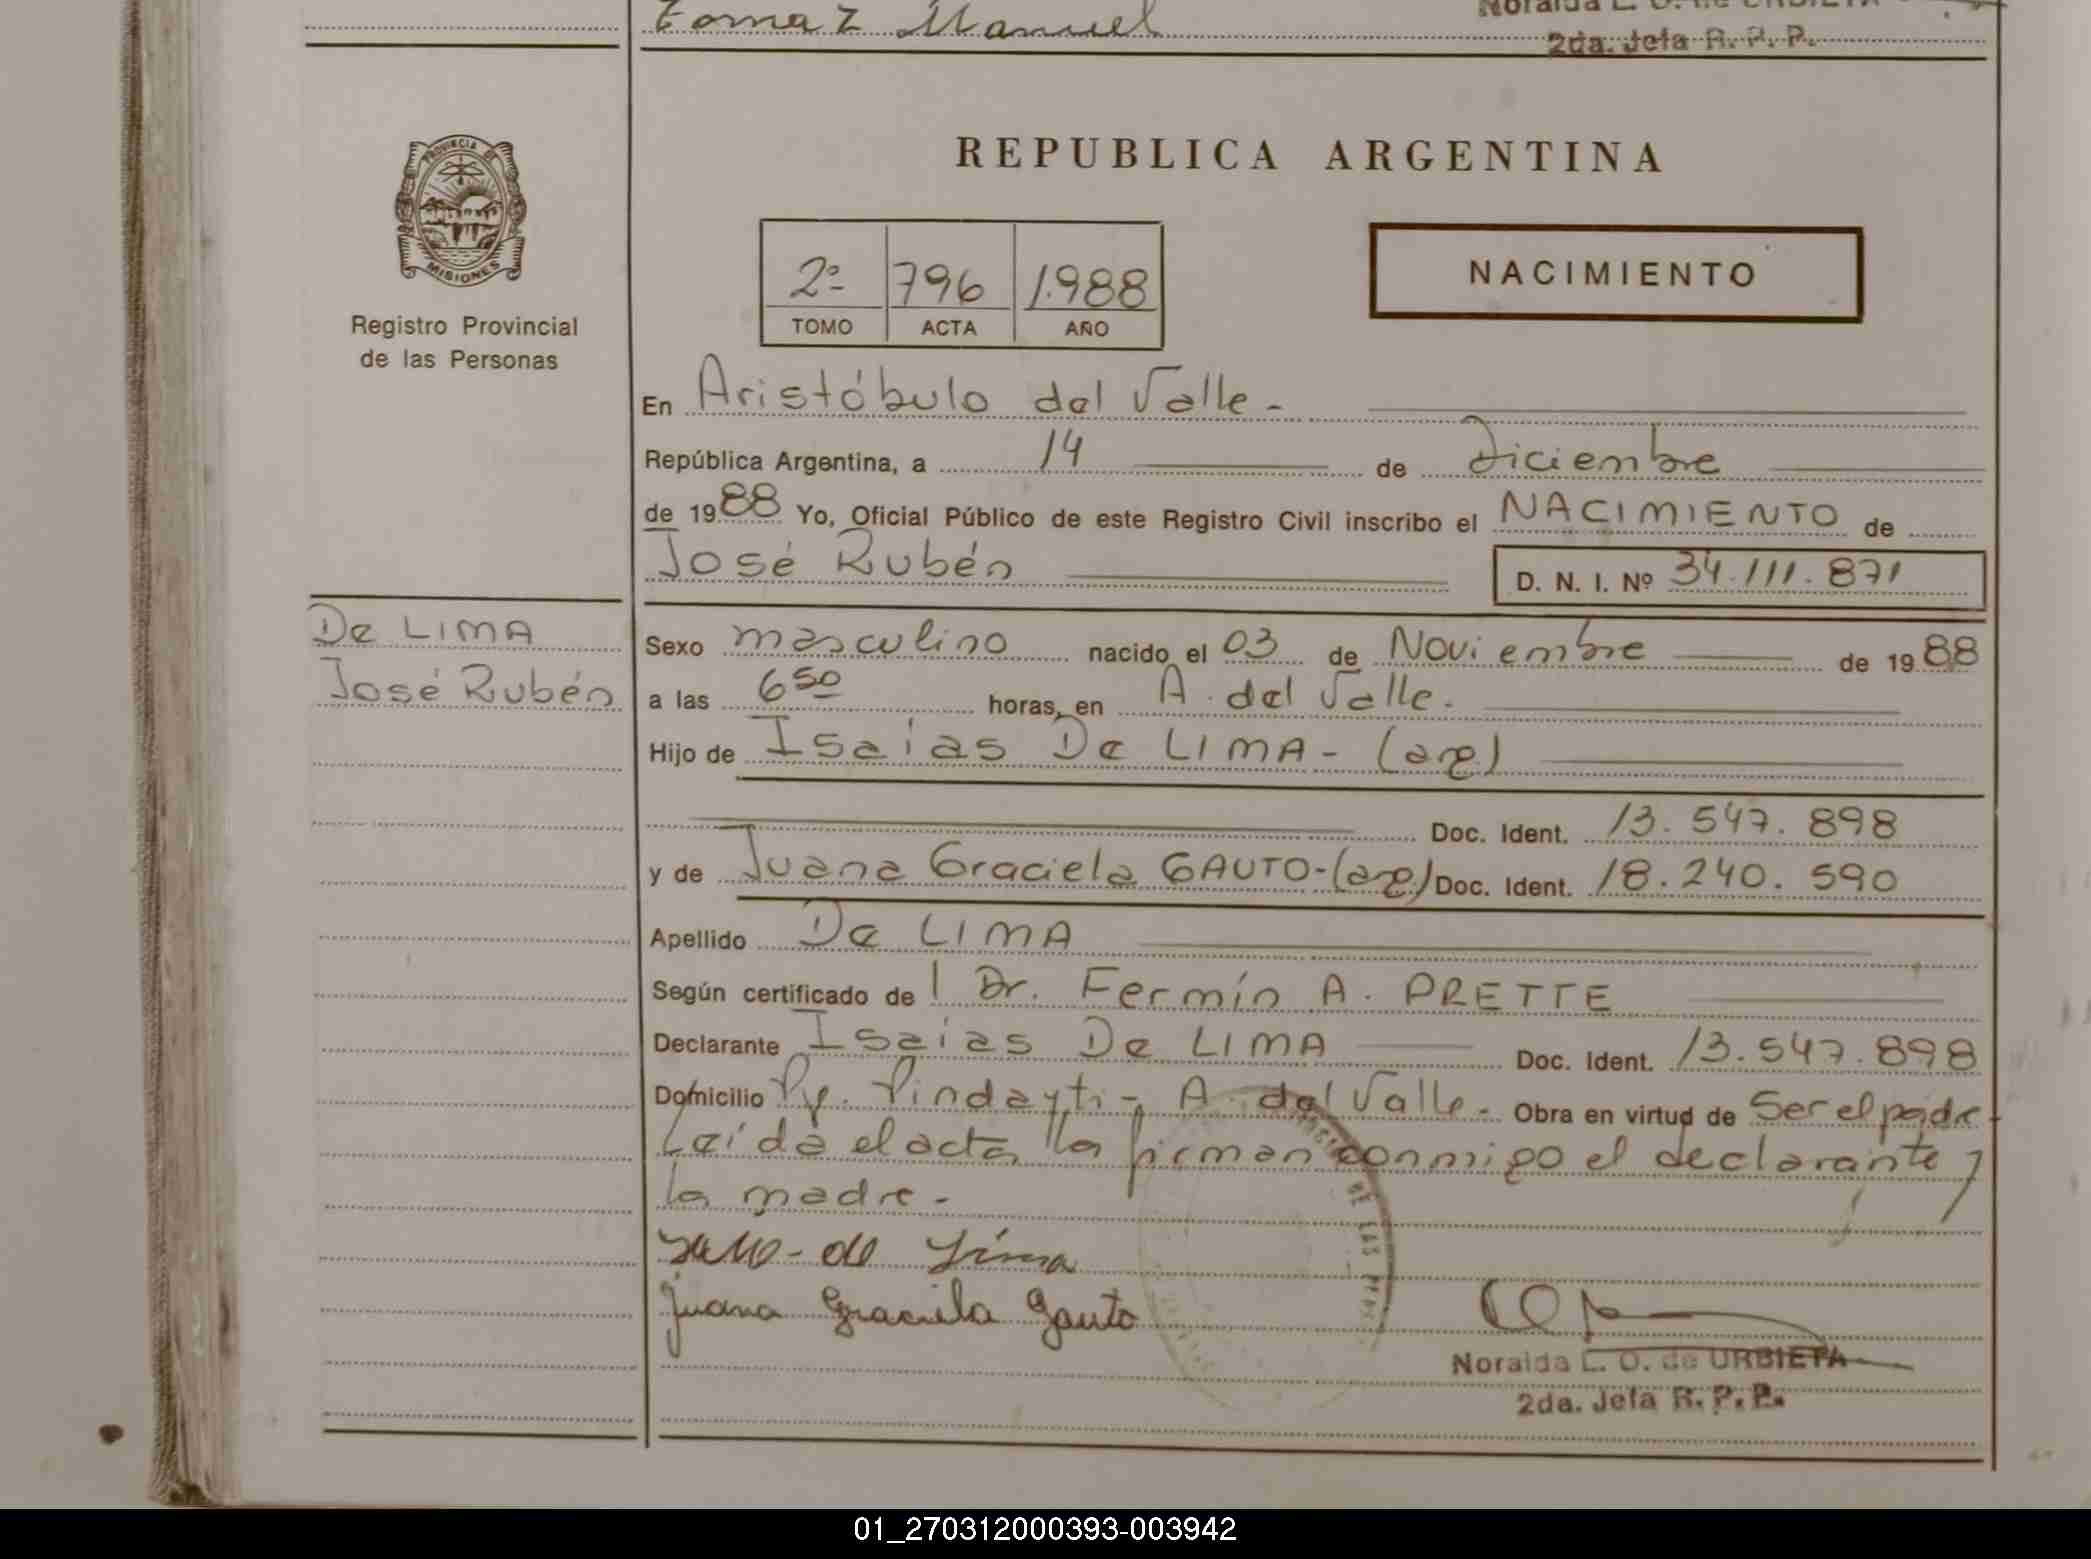 Tomaz Manuel
Noralda L. O. de URBIETA
2da. Jefa R. P. P.
PROVINCIA DE
MISIONES
Registro Provincial
de las Personas
REPUBLICA ARGENTINA
2º 796 1.988
TOMO ACTA AÑO
NACIMIENTO
En Aristóbulo del Valle -
República Argentina, a 14 de Diciembre
de 1988 Yo, Oficial Público de este Registro Civil inscribo el NACIMIENTO de
José Rubén D. N. I. Nº 34.111.871
De LIMA
José Rubén
Sexo masculino nacido el 03 de Noviembre de 1988
a las 6 50 horas, en A. del Valle.
Hijo de Isaías De LIMA - (arg)
Doc. Ident. 13.547.898
y de Juana Graciela GAUTO - (arg) Doc. Ident. 18.240.590
Apellido De LIMA
Según certificado de l Dr. Fermín A. PRETTE
Declarante Isaías De LIMA Doc. Ident. 13.547.898
Domicilio Py. Pindayti - A. del Valle - Obra en virtud de Ser el padre -
Leída el acta la firman conmigo el declarante y
la madre -
de Lima
Juana Graciela Gauto
Noralda L. O. de URBIETA
2da. Jefa R. P. P.
DE LAS
01_270312000393-003942